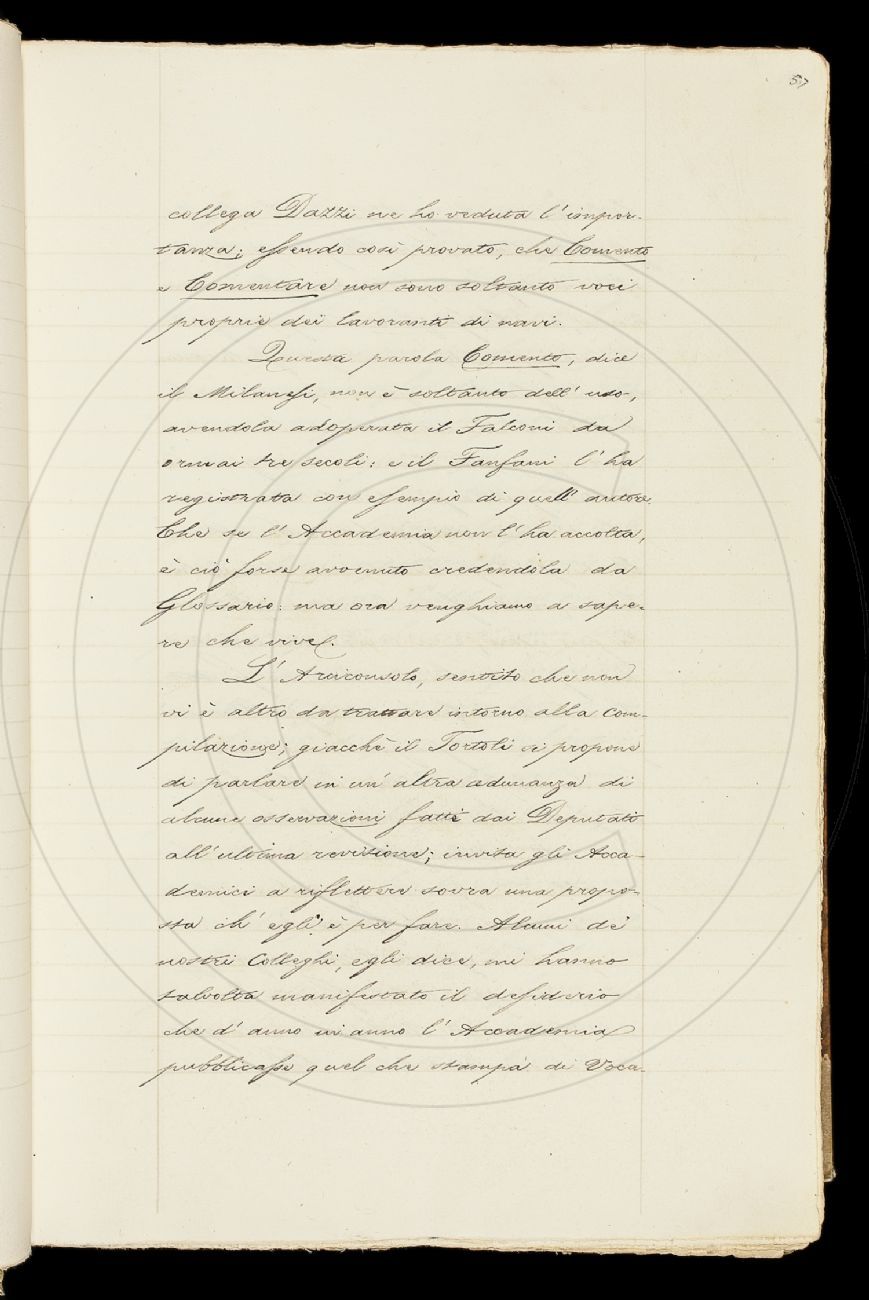 57
collega Dazzi ne ho veduta l'impor-
tanza; essendo così provato, che Comento
e Comentare non sono soltanto voci
proprie dei lavoranti di navi.
Questa parola Comento, dice
il Milanesi, non è soltanto dell'uso,
avendola adoperata il Falconi da
ormai tre secoli: e il Fanfani l'ha
registrata con esempio di quell'autore.
Che se l'Accademia non l'ha accolta,
è ciò forse avvenuto credendola da
Glossario: ma ora venghiamo a sape-
re che vive.
L'Arciconsolo, sentito che non
vi è altro da trattare intorno alla com-
pilazione; giacchè il Tortoli si propone
di parlare in un'altra adunanza di
alcune osservazioni fatte dai Deputati
all'ultima revisione; invita gli Acca-
demici a riflettere sovra una propo-
sta ch'egli è per fare. Alcuni de'
nostri Colleghi, egli dice, mi hanno
talvolta manifestato il desiderio
che d'anno in anno l'Accademia
pubblicasse quel che stampa di Voca-